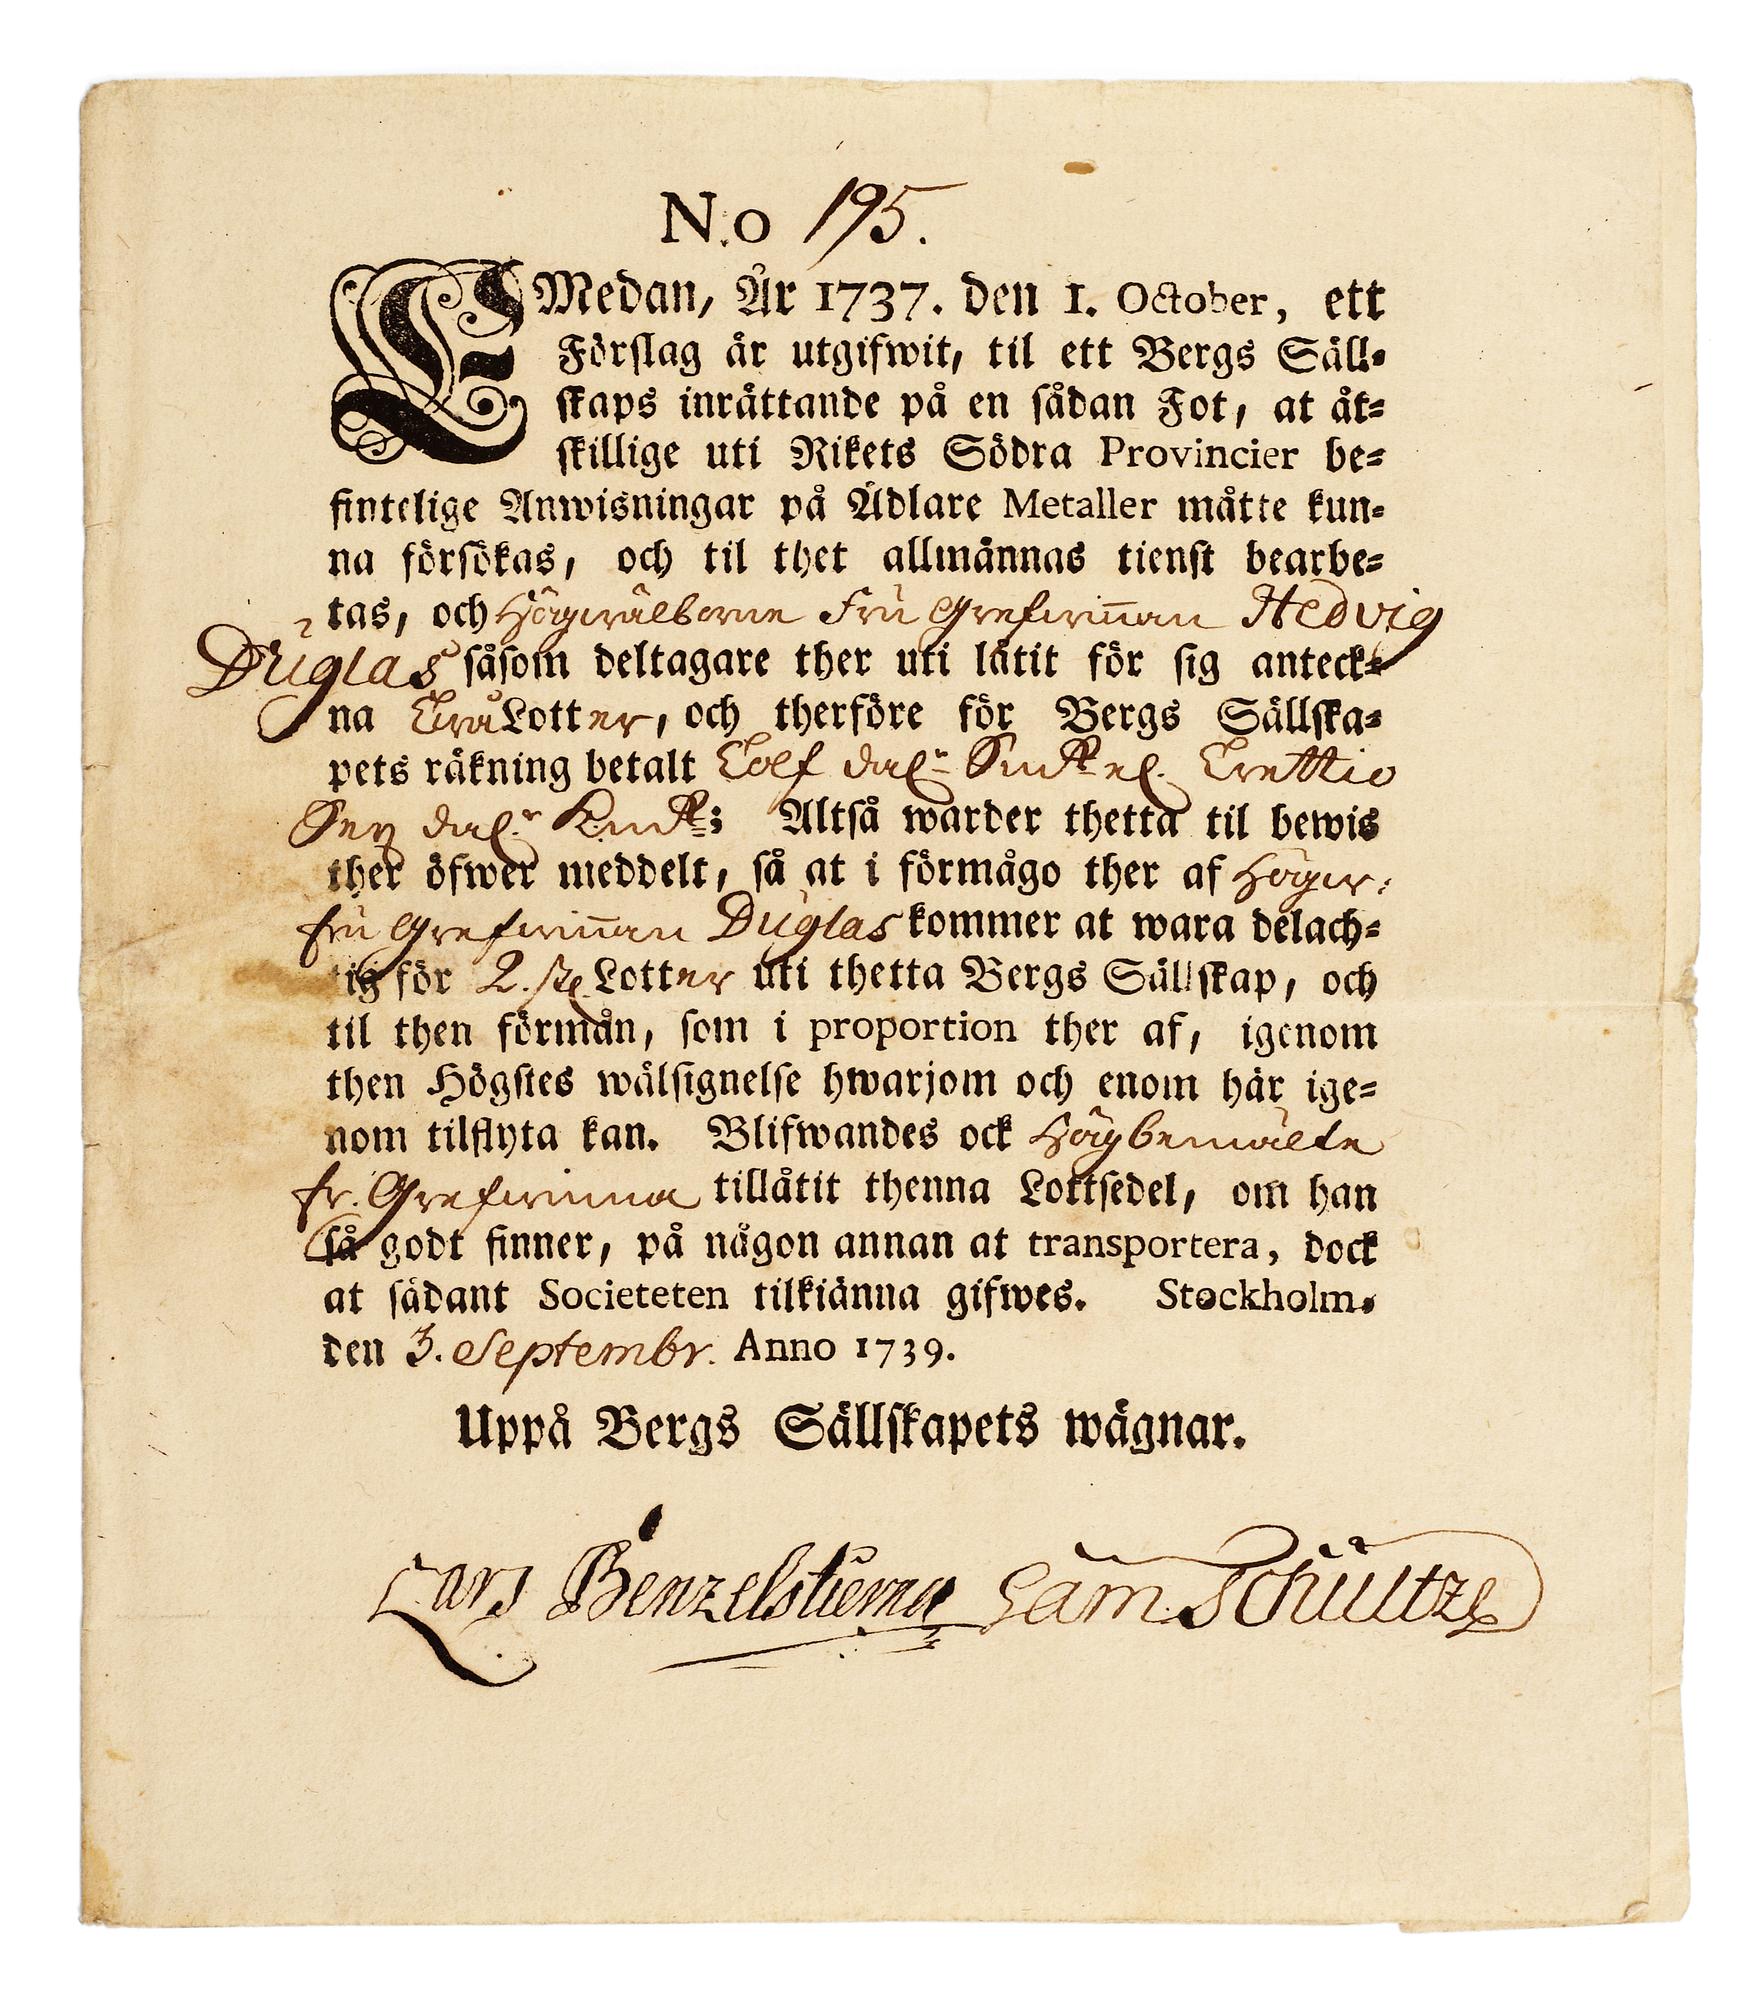 N:o 195.
EMedan, År 1737. den 1. October, ett
Förslag är utgifwit, til ett Bergs Säll⸗
skaps inrättande på en sådan Fot, at åt⸗
skillige uti Rikets Södra Provincier be⸗
fintelige Anwisningar på Ädlare Metaller måtte kun⸗
na försökas, och til thet allmännas tienst bearbe⸗
tas, och Högwälborne Fru Grefwin̄an Hedvig
Duglas såsom deltagare ther uti låtit för sig anteck⸗
na Två Lotter, och therföre för Bergs Sällska⸗
pets räkning betalt Tolf dal:r Smt el. Trettio
Sex dal:r Kmt; Altså warder thetta til bewis
ther öfwer meddelt, så at i förmågo ther af Högw:
fru Grefwin̄an Duglas kommer at wara delach⸗
tig för 2. st. Lotter uti thetta Bergs Sällskap, och
til then förmån, som i proportion ther af, igenom
then Högstes wälsignelse hwarjom och enom här ige⸗
nom tilflyta kan. Blifwandes ock Högbemälte
fr. Grefwinna tillåtit thenna Lottsedel, om han
så godt finner, på någon annan at transportera, dock
at sådant Societeten tilkiänna gifwes. Stockholm.
den 3. Septembr. Anno 1739.
Uppå Bergs Sällskapets wägnar.
Lars Benzelstierna Sam Schultze